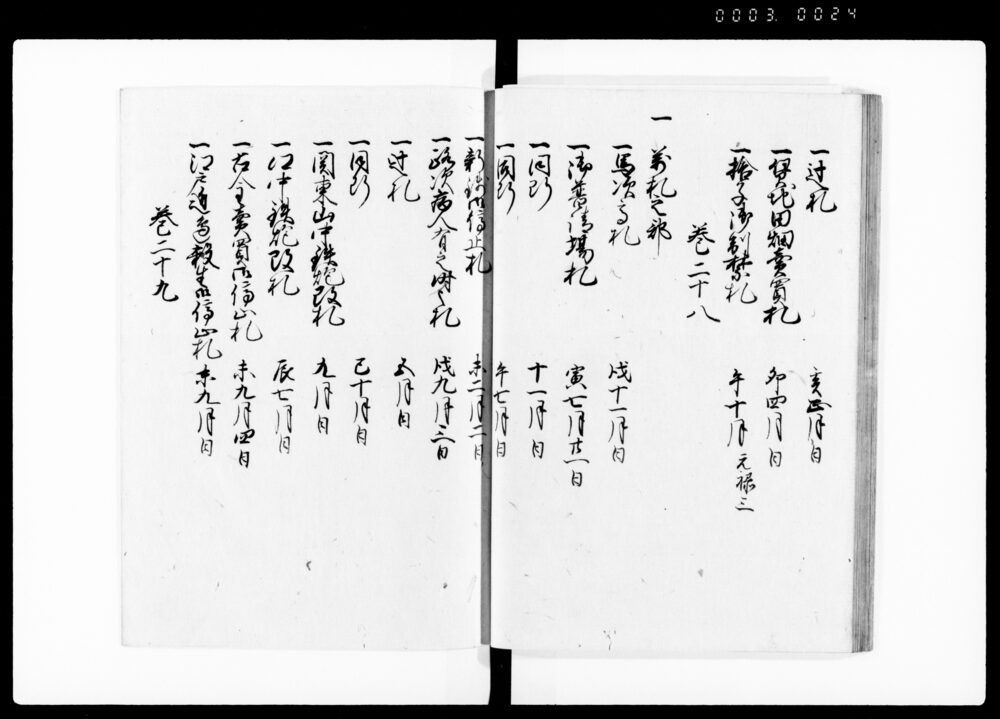 0003. 0024
一辻札 亥正月日
一田畑売買札 卯四月日
一捨子御制禁札 午十月 元禄三
巻二十八
一 万札之部
一馬次高札 戌十一月日
一御普請場札 寅七月廿一日
一同断 十一月日
一同断 午七月日
一新銭停止札 未二月二日
一路次病人有之時之札 戌九月三日
一辻札 五月日
一同断 巳十月日
一関東山中鉄炮改札 九月日
一江中鉄炮改札 辰七月日
一古金売買停止札 未九月四日
一江戸近辺殺生停止札 未九月日
巻二十九